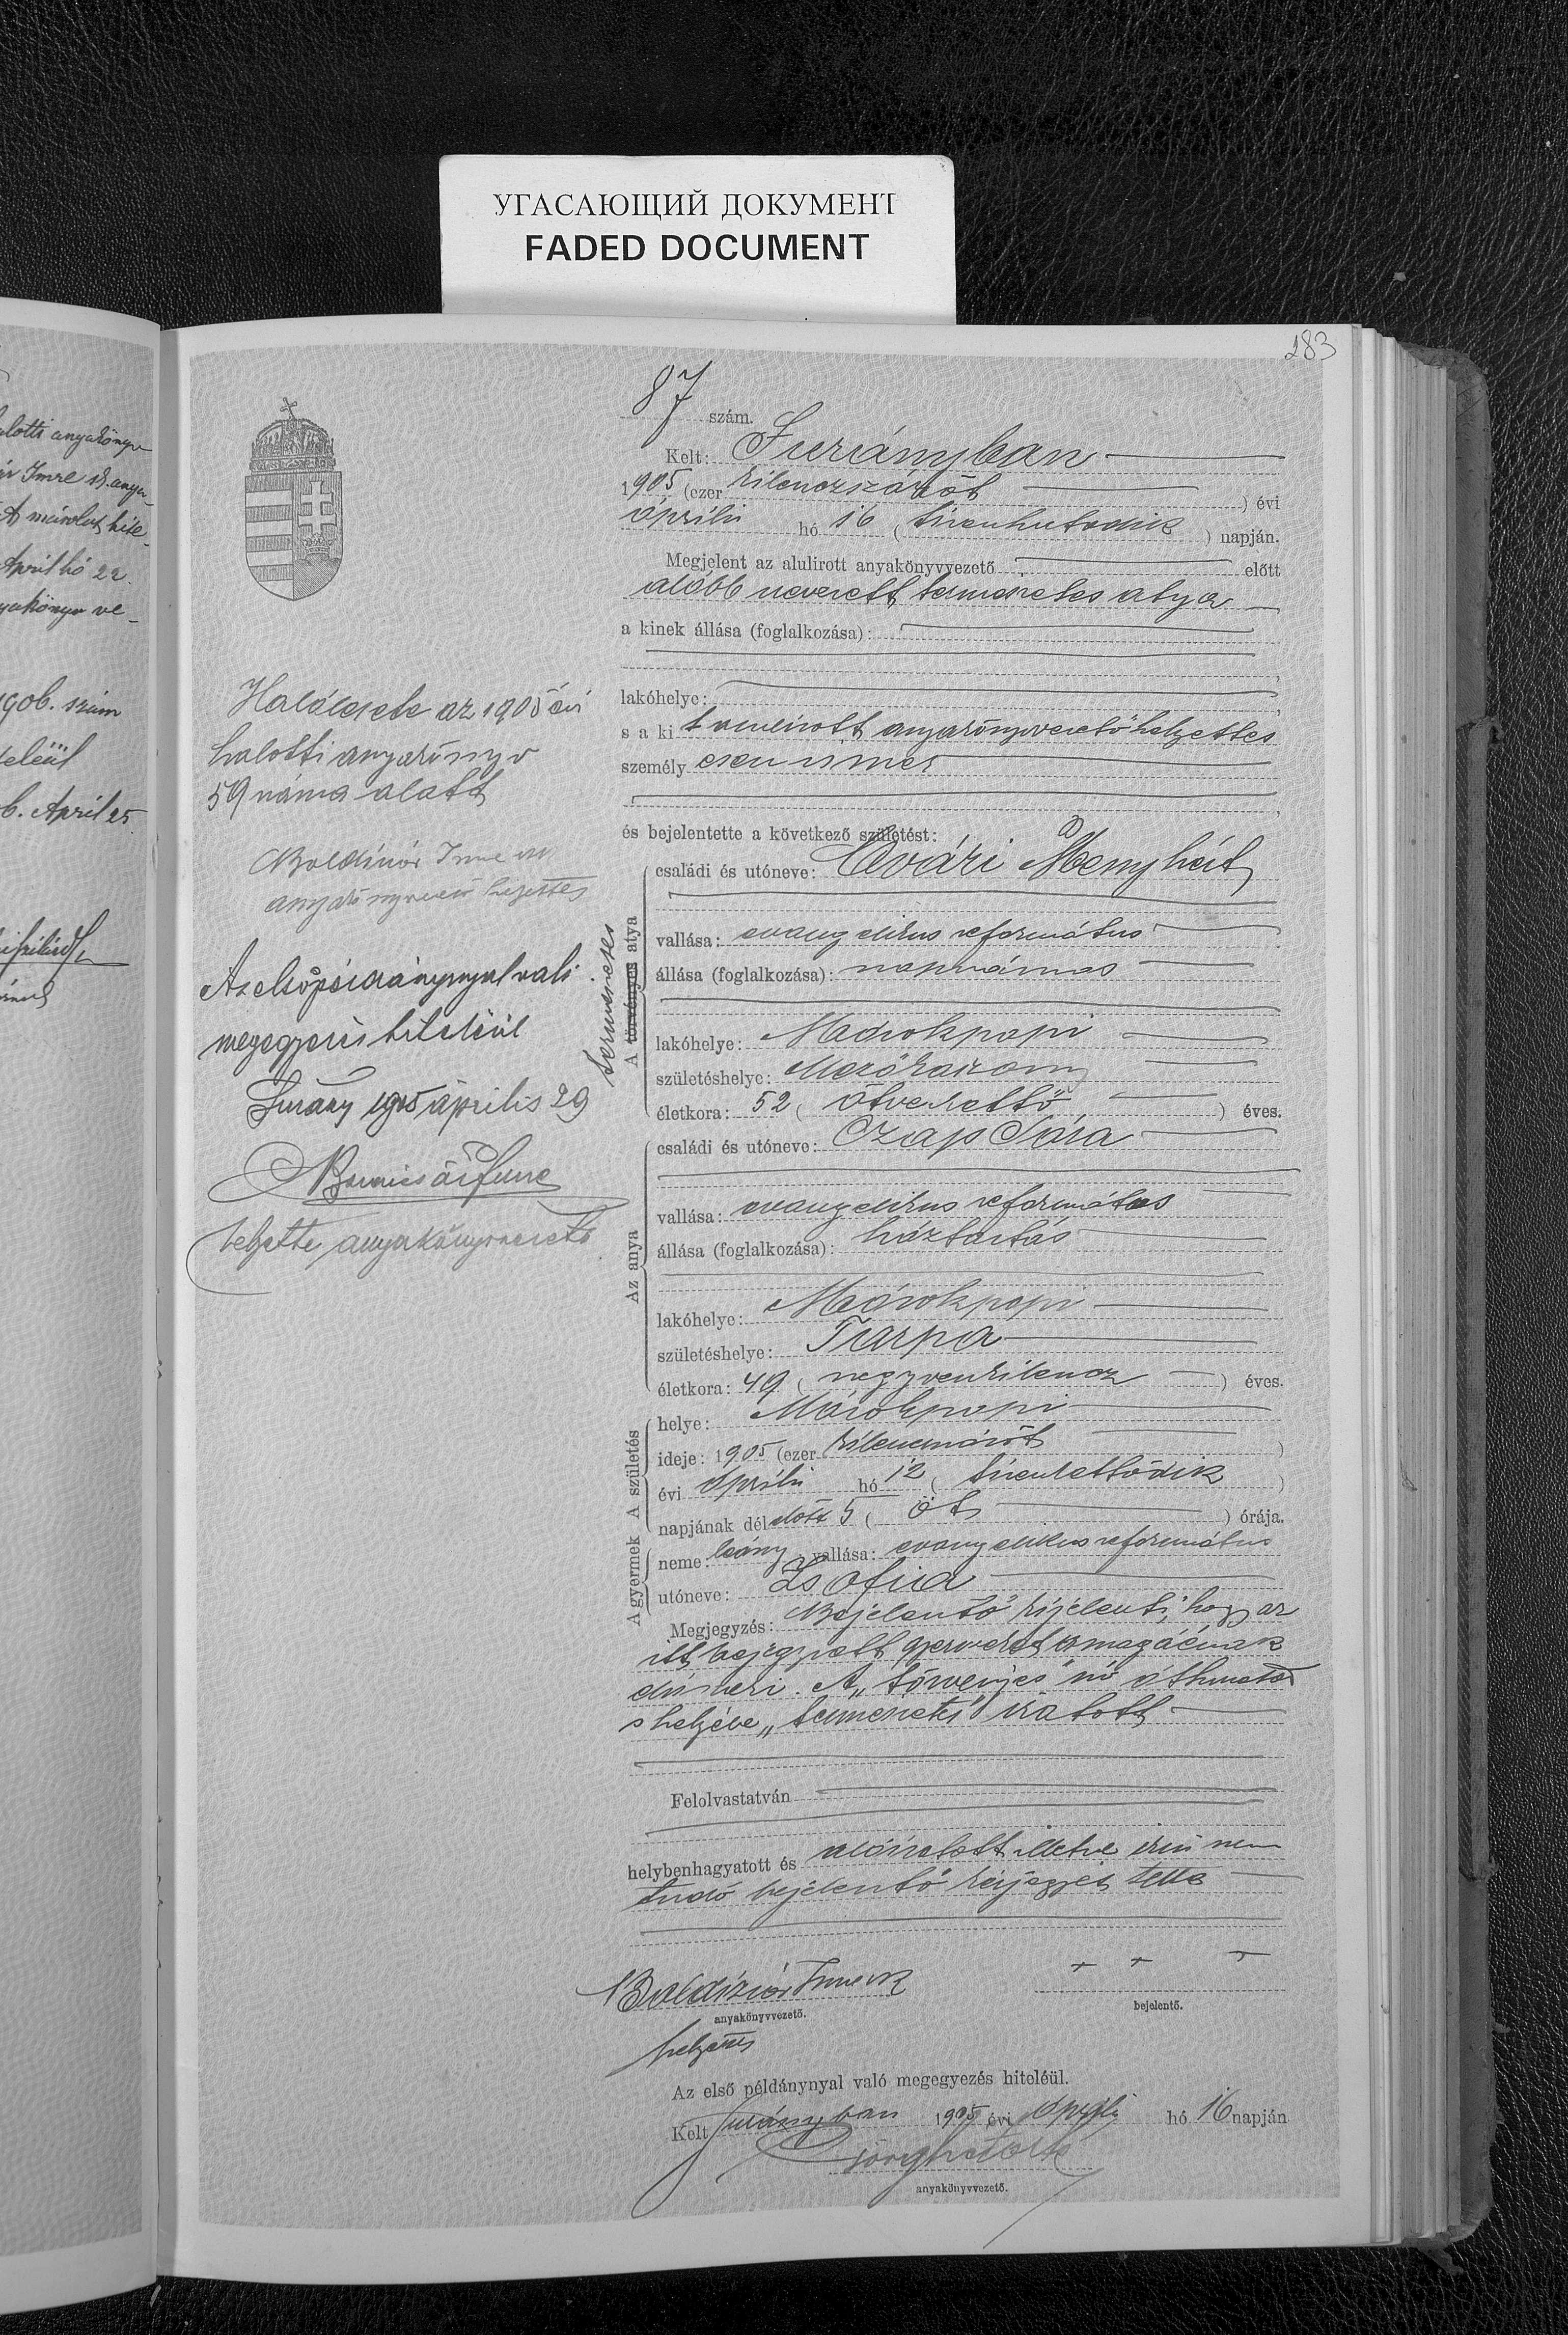 УГАСАЮЩИЙ ДОКУМЕНТ
FADED DOCUMENT
283
alotti anyakönyv
Imre
A másolat hite-
April hó 22.
anyakönyv ve-
1906. szám
April 25.
87 szám.
Kelt: Surányban
1905 (ezer kilenczszázöt ) évi
április hó 16 (tizenhatodik ) napján.
Megjelent az alulirott anyakönyvvezető előtt
alább nevezett természetes atya
a kinek állása (foglalkozása):
lakóhelye:
s a ki t anyakönyvvezető helyettes
személy esen ismer
és bejelentette a következő születést:
A törvényes atya
természetes
családi és utóneve: Menyhért
vallása: evangelikus református
állása (foglalkozása): napszámos
lakóhelye: Márokpapi
születéshelye: Mezőkaszony
életkora: 52 ( ötvenkettő ) éves.
Az anya
családi és utóneve: Czap Sára
vallása: evangelikus református
állása (foglalkozása): háztartás
lakóhelye: Márokpapi
születéshelye: Tarpa
életkora: 49 ( negyvenkilencz ) éves.
A születés
helye: Márokpapi
ideje: 1905 (ezer kilenczszázöt )
évi április hó 12 ( tizenkettődik )
napjának délelőtt 5 ( öt ) órája.
A gyermek
neme: leány vallása: evangelikus református
utóneve: Zsofia
Megjegyzés: Bejelentő kijelenti, hogy az
itt bejegyzett gyermeket magáénak
elismeri. A „törvényes" szó
s helyébe „természetes" iratott
Felolvastatván
helybenhagyatott és aláiratott illetve irni nem
tudó bejelentő kézjegyét tette
Boldizsár Imre sk
anyakönyvvezető.
helyettes
+ + +
bejelentő.
Az első példánynyal való megegyezés hiteléül.
Kelt Surányban 1905 évi április hó 16 napján
anyakönyvvezető.
Halálesete az 1905 évi
halotti anyakönyv
59 száma alatt
Boldizsár Imre sk
anyakönyvvezető helyettes
Az első példánynyal való
megegyezés hiteléül
Surány 1905 április 29
helyettes anyakönyvvezető